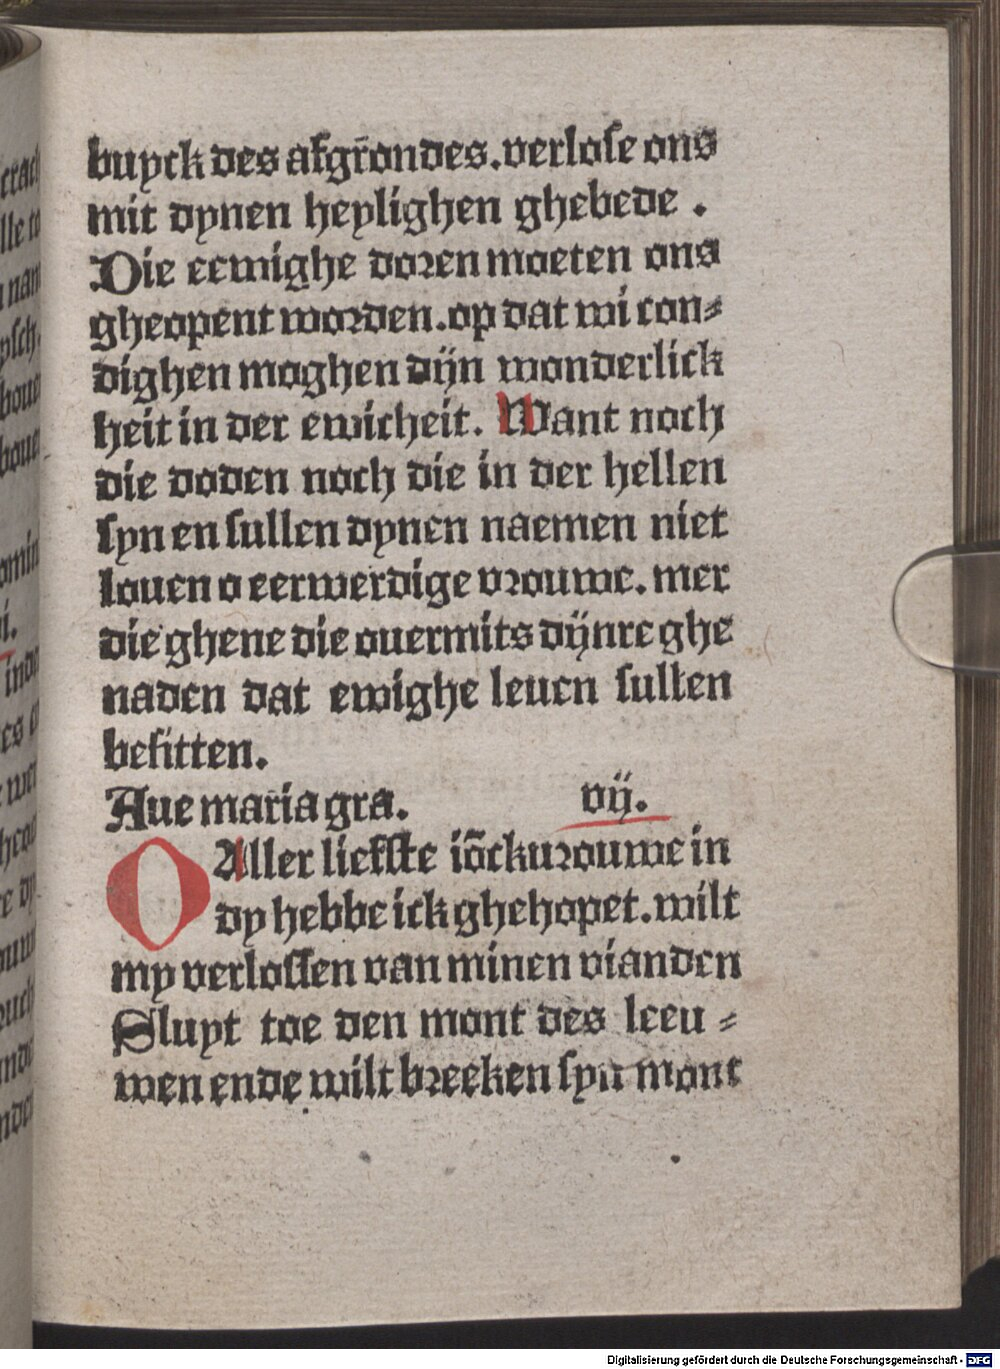 buyck des afgr̄ondes.verlose ons
mit dynen heylighen ghebede .
Die eewighe doren moeten ons
gheopent worden.op dat wi con⸗
dighen moghen dijn wonderlick
heit in der ewicheit. Want noch
die doden noch die in der hellen
syn en sullen dynen naemen niet
louen o eerwerdige vrouwe. mer
die ghene die ouermits dijnre ghe
naden dat ewighe leuen sullen
besitten.
Aue maria gra. vij.
O Aller liefste iōckurouwe in
dy hebbe ick ghehopet.wilt
my verlossen van minen vianden
Sluyt toe den mont des leeu⸗
wen ende wilt breeken syn mont
Digitalisierung gefördert durch die Deutsche Forschungsgemeinschaft - DFG